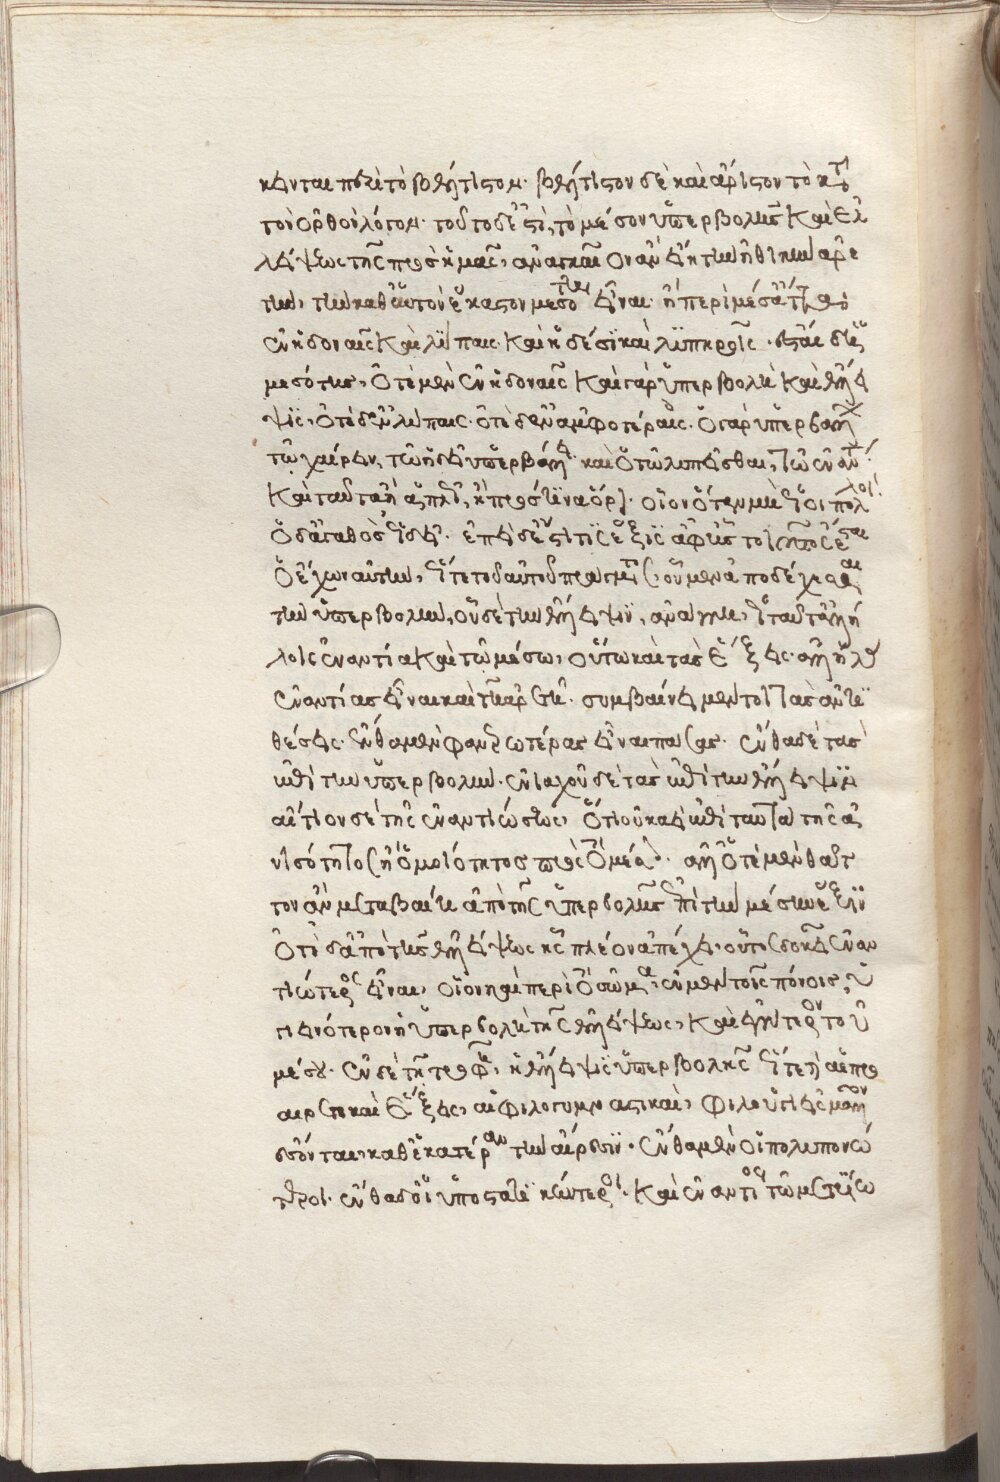 κεινται πρὸς τὸ βέλτιστον. βέλτιστον δὲ καὶ ἄριστον τὸ κατὰ
τὸν ὀρθὸν λόγον. τοῦτο δ' ἐστὶ, τὸ μέσον ὑπερβολῆς καὶ ἐλ
λείψεως τῆς πρὸς ἡμᾶς, ἀναγκαῖον ἂν εἴη τὴν ἠθικὴν ἀρε
τὴν, τὴν καθ' αὑτὸν ἕκαστον μεσότητα εἶναι ἢ περὶ μέσ' ἄττα
ἐν ἡδοναῖς καὶ λύπαις καὶ ἡδέσϊ καὶ λϋπηροῖς. ἔσται δ' ἡ
μεσότης, ὁτὲ μὲν ἐν ἡδοναῖς καὶ γὰρ ὑπερβολὴ καὶ ἔλλει
ψϊς, ὁτὲ δ' ἐν λύπαις. ὁτὲ δ' ἐν ἀμφοτέραις. ὁ γὰρ ὑπερβάλλων
τῷ χαίρειν, τῷ ἡδεῖ ὑπερβάλλει. καὶ ὁ τῷ λυπεῖσθαι, τῷ ἐναντίῳ.
καὶ ταῦτα ἢ ἁπλῶς, ἢ πρός τϊνα ὅρον. οἷον ὅταν μὴ ὡς οἱ πολλοί.
ὁ δ' ἀγαθὸς, ὡς δεῖ. ἐπεὶ δ' ἐστί τϊς ἕξϊς ἀφ' ἧς τοιοῦτος ἔσται
ὁ ἔχων αὐτὴν, ὥστε τοῦ αὐτοῦ πράγματος, ὁ μὲν ἀποδέχεσθαι
τὴν ὑπερβολὴν, ὁ δὲ τὴν ἔλλειψϊν, ἀνάγκη, ὡς ταῦτ' ἀλλή
λοις ἐναντία καὶ τῷ μέσω, οὕτω καὶ τὰς ἕξεις ἀλλήλαις
ἐναντίας εἶναι καὶ τῇ ἀρετῇ. συμβαίνει μέντοι τὰς ἀντϊ
θέσεις ἔνθα μὲν φανερωτέρας εἶναι πάσας. ἔνθα δὲ τὰς
ἐπὶ τὴν ὑπερβολὴν. ἐνιαχοῦ δὲ τὰς ἐπὶ τὴν ἔλλειψϊν
αἴτιον δὲ τῆς ἐναντιώσεως, ὅτι οὐκ ἀεὶ ἐπὶ ταὐτὰ τῆς ἀ
νισότητος ἢ ὁμοιότητος πρὸς τὸ μέσον. ἀλλ' ὁτὲ μὲν θᾶτ
τον ἂν μεταβαίη ἀπὸ τῆς ὑπερβολῆς ἐπὶ τὴν μέσην ἕξϊν
ὁτὲ δ' ἀπὸ τῆς ἐλλείψεως ἧς πλέον ἀπέχει, οὗτος δοκεῖ ἐναν
τιώτερος εἶναι, οἷον καὶ περὶ τὸ σῶμα, ἐν μὲν τοῖς πόνοις, ὑ
γιεινότερον ἡ ὑπερβολὴ τῆς ἐλλείψεως, καὶ ἐγγύτερον τοῦ
μέσου. ἐν δὲ τῇ τροφῇ, ἡ ἔλλειψϊς ὑπερβολῆς ὥστε καὶ αἱ προ
αιρετικαὶ ἕξεις, αἱ φιλογυμναστικαὶ, φιλοϋγιεῖς μᾶλλον
ἔσονται, καθ' ἑκατέραν τὴν αἵρεσϊν. ἔνθα μὲν οἱ πολυπονώ
τεροι. ἔνθα δ' οἱ ὑποστατϊκώτεροι. καὶ ἐναντίος τῷ μετρίῳ